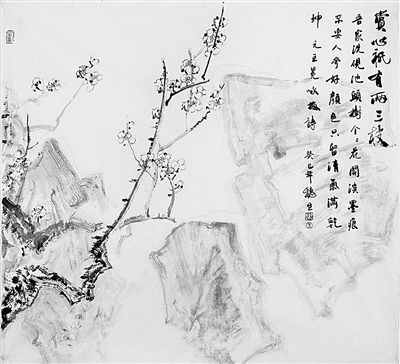 賞心祇有兩三枝
吾家洗硯池頭樹个々花開淡墨痕
不要人夸好顏色只留清氣滿乾
坤 元王冕咏梅詩 癸巳年